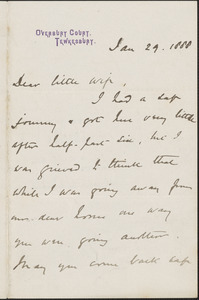 OVERBURY COURT,
TEWKESBURY.
Jan 29. 1888
Dear little wife,
I had a safe
journey & got here very little
after half-past six, but I
was grieved to think that
while I was going away from
our dear home one way
you were going another.
May you come back safe